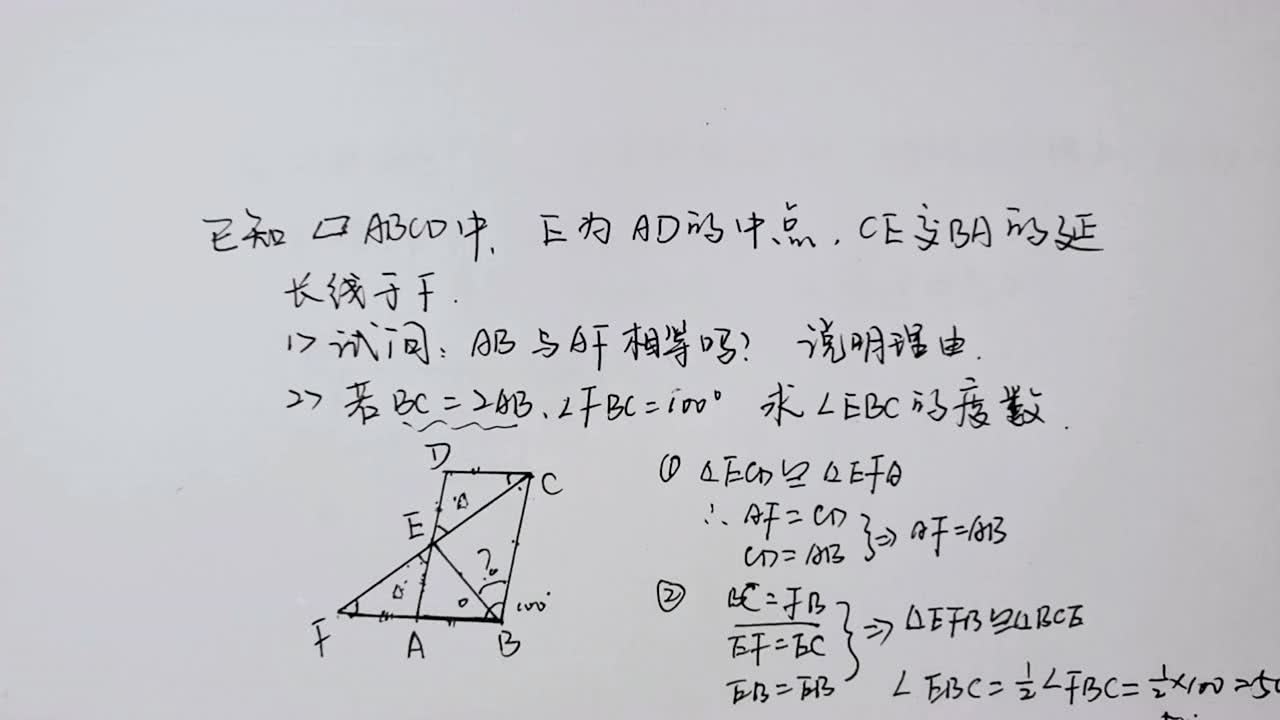 已知 ▱ABCD中, E为AD的中点, CE交BA的延
长线于F.
1> 试问: AB与AF相等吗? 说明理由.
2> 若BC=2AB、∠FBC=100° 求∠EBC的度数.
D
C
E
?
100°
F
A
B
① △ECD≌△EFA
∴ AF=CD
CD=AB } ⇒ AF=AB
② BC=FB
EF=EC
EB=EB } ⇒ △EFB≌△BCE
∠EBC=½∠FBC=½×100=50